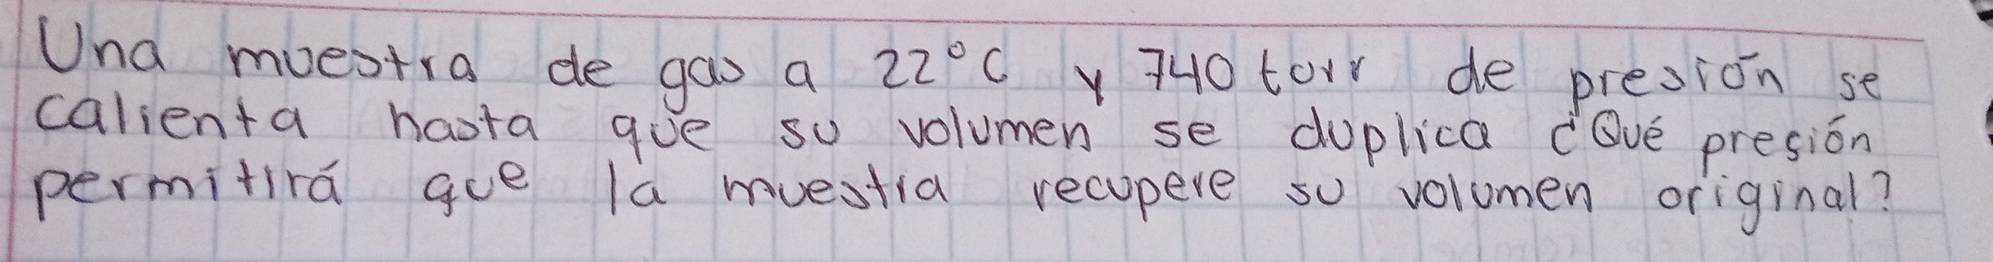 Una muestra de gas a 22°C y 740 torr de presión se
calienta hasta que su volumen se duplica ¿Qué presión
permitirá que la muestra recupere su volumen original?